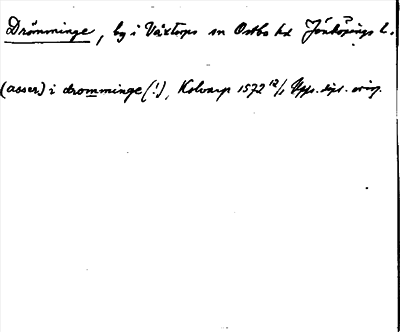 Drömminge, by i Våxtorps sn Östbo hd Jönköpings l.
(asser) i dromminge (!), Kolvarp 1572 12/1 Upps. dipl. orig.